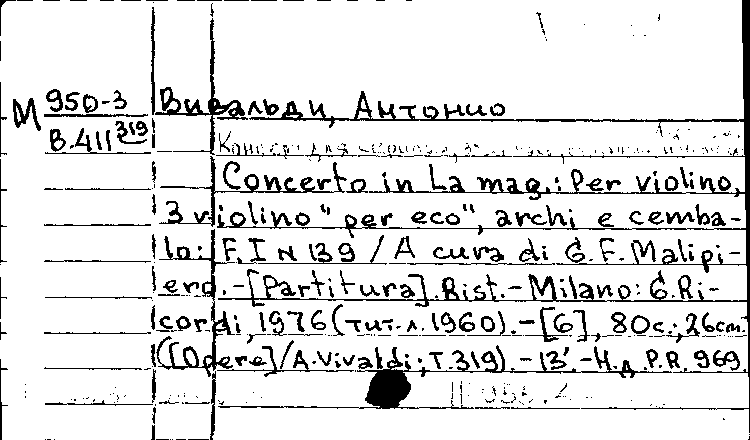 М 950-3 Вивальди, Антонио
В.411 319
Концерт для
Concerto in La mag.: Per violino,
3 violino "per eco", archi e cemba-
lo: F. I N 139 / A cura di G. F. Malipi-
ero. - [Partitura]. Rist. - Milano: G. Ri-
cordi, 1976 (тит. л. 1960). - [6], 80 с.; 26 см.
([Opere] / A. Vivaldi; T. 319). - 13'. - Н. д. P.R. 969.